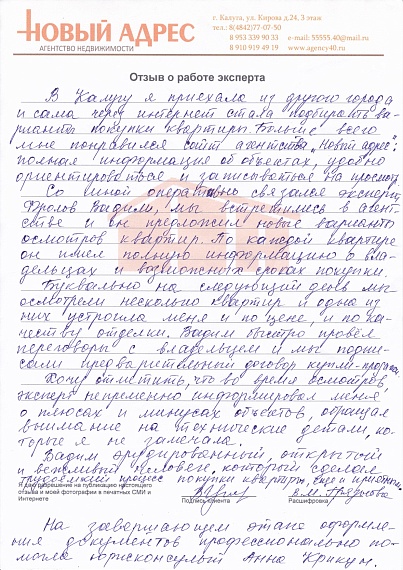 НОВЫЙ АДРЕС
АГЕНТСТВО НЕДВИЖИМОСТИ
г. Калуга, ул. Кирова д.24, 3 этаж
тел.: 8(4842)77-07-50
8 953 339 90 33 e-mail: 55555.40@mail.ru
8 910 919 49 19 www.agency40.ru
Отзыв о работе эксперта
В Калугу я приехала из другого города
и сама через интернет стала подбирать ва-
рианты покупки квартиры. Больше всего
мне понравился сайт агентства „Новый адрес":
полная информация об объектах, удобно
ориентироваться и записываться на просмотр.
Со мной оперативно связался эксперт
Фролов Вадим, мы встретились в агент-
стве и он предложил новые варианты
осмотров квартир. По каждой квартире
он имел полную информацию о вла-
дельцах и возможных сроках покупки.
Буквально на следующий день мы
осмотрели несколько квартир и одна из
них устроила меня и по цене, и по ка-
честву отделки. Вадим быстро провёл
переговоры с владельцем и мы подпи-
сали предварительный договор купли-продажи.
Хочу отметить, что во время осмотров,
эксперт непременно информировал меня
о плюсах и минусах объектов, обращая
внимание на технические детали, ко-
торые я не замечала.
Вадим эрудированный, открытый
и вежливый человек, который сделал
трудоёмкий процесс покупки квартиры, ещё и приятным.
Я даю разрешение на публикацию настоящего
отзыва и моей фотографии в печатных СМИ и
Интернете
Подпись клиента
Расшифровка
На завершающем этапе оформле-
ния документов профессионально по-
могла юрисконсульт Анна Крикун.